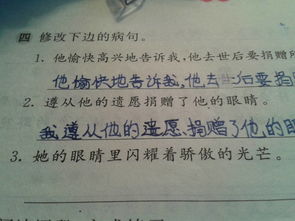 四 修改下边的病句。
1. 他愉快高兴地告诉我,他去世后要捐赠所
他愉快地告诉我,他去世后要捐
2. 遵从他的遗愿捐赠了他的眼睛。
我遵从他的遗愿、捐赠了他的眼
3. 她的眼睛里闪耀着骄傲的光芒。